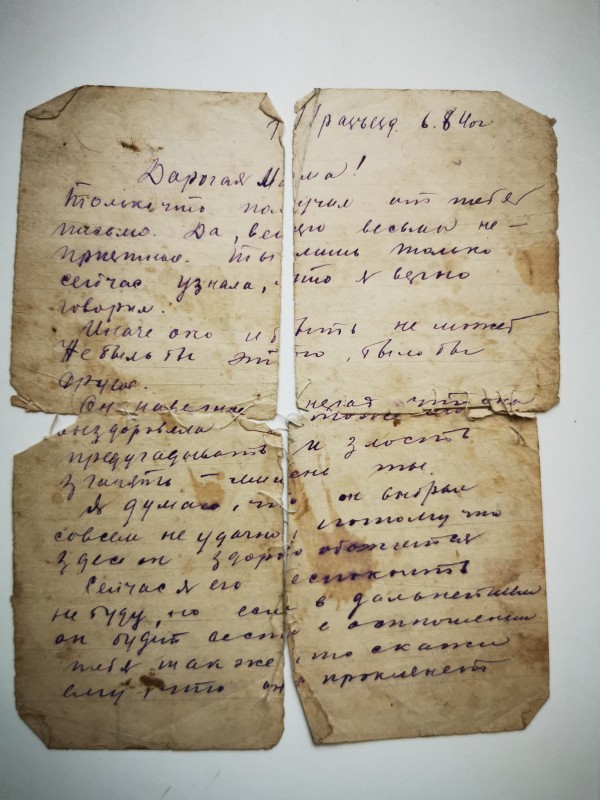 6.8 40г
Дорогая Мама!
Только что получил от тебя
письмо. Да, весьма не-
приятное. Ты лишь только
сейчас узнала, что я верно
говорил.
Иначе оно и быть не может
Не было бы этого, было бы
другое.
Он наверное что она
выздоровела
предугадывать и злость
ты.
Я думаю, что он выбрал
совсем не удачно потому что
здесь он здорово обожжется
Сейчас я его беспокоить
не буду, но если в дальнейшем
он будет вести в отношении
тебя так же, то скажи
ему, что он проклянет